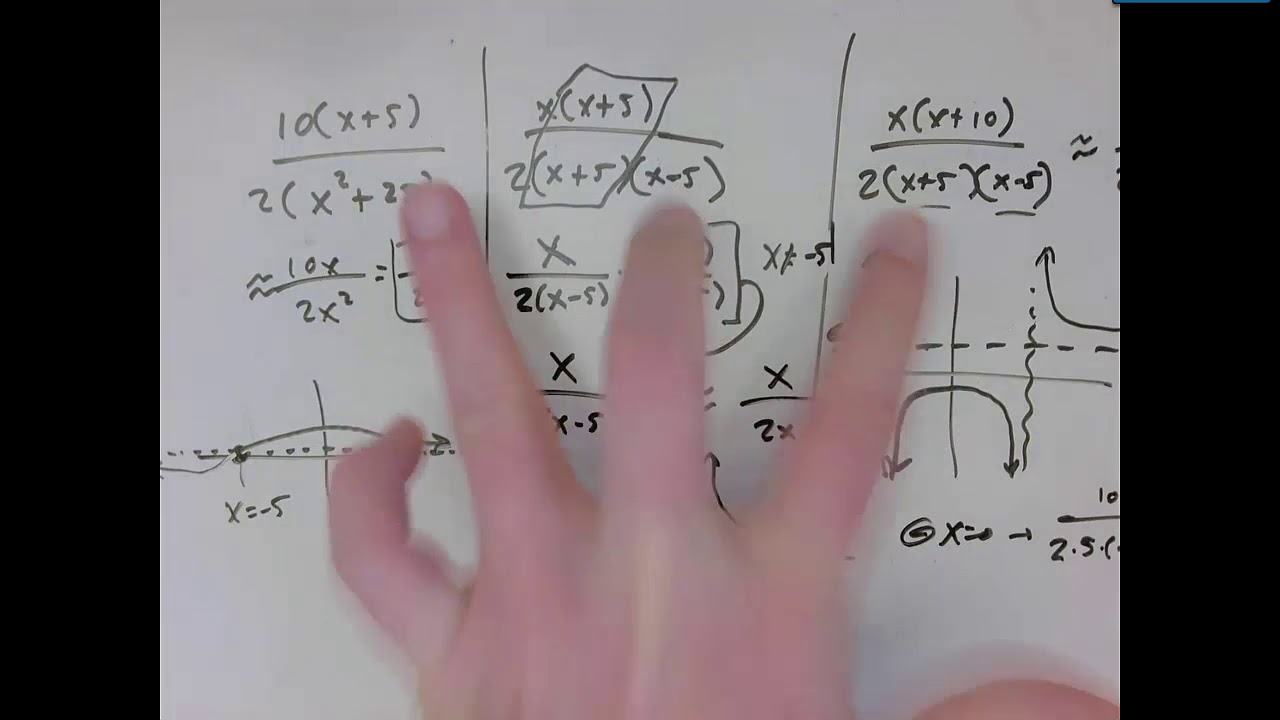 10(x+5)
2(x²+25)
≈ 10x
2x²
=
x=-5
x(x+5)
2(x+5)(x-5)
x
2(x-5)
x≠-5
x
x-5
=
x
2x
x(x+10)
2(x+5)(x-5)
≈
@ x=0 →
10
2·5·(